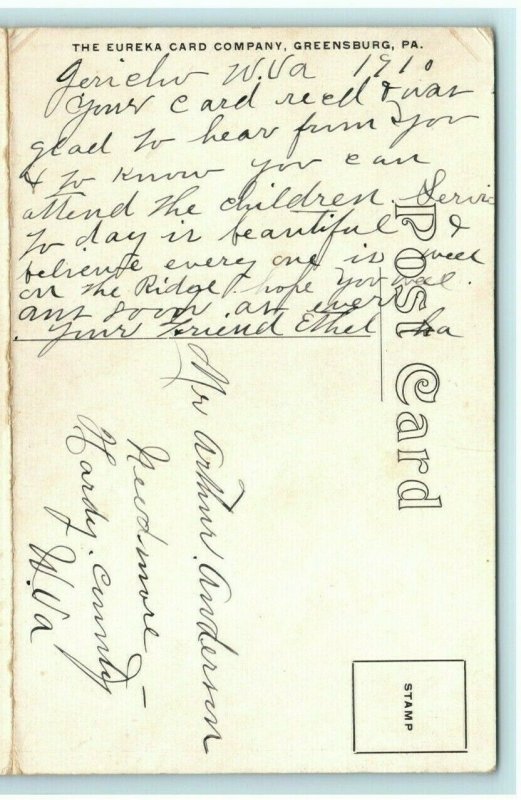 THE EUREKA CARD COMPANY, GREENSBURG, PA.
Jericho W.Va 1910
Your card recd & was
glad to hear from you
& to know you can
attend the children. Servic
to day is beautiful &
believe every one is well
on the Ridge. hope you will
ans soon. as ever
Your friend Ethel
Post Card
Mr Arthur Anderson
Needmore
Hardy. County
W.Va
STAMP